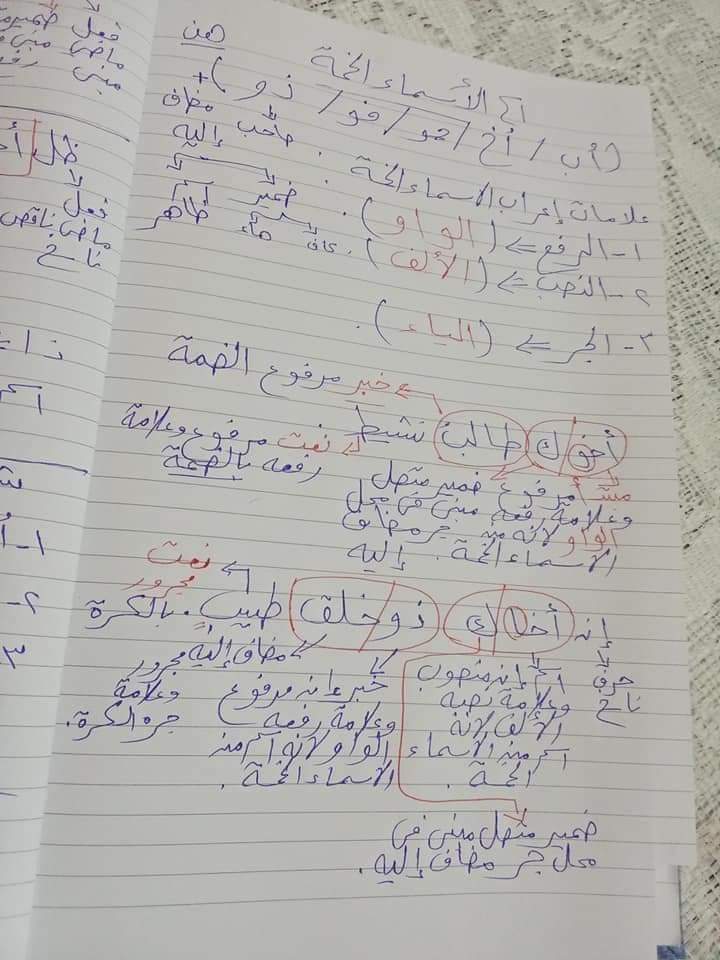 هن
٤) الأسماء الخمسة
(أب / أخ / حمو / فو / ذو) +
صاحب مضاف إليه
علامات إعراب الاسماء الخمسة.
ضمير اسم
كاف هاء ظاهر
١- الرفع ⇐ (الواو).
٢- النصب ⇐ (الألف).
٣- الجر ⇐ (الياء).
خبر مرفوع الضمة
أخوك طالب نشط
نعت مرفوع وعلامة
رفعه بالضمة
مبتدأ مرفوع
وعلامة رفعه
الواو لانه من
الاسماء الخمسة.
ضمير متصل
مبني في محل
جر مضاف
إليه
نعت
مجرور
إن أخاك ذو خلق طيبٍ. بالكسرة
حرف
ناسخ
اسم إن منصوب
وعلامة نصبه
الألف لانه
اسم من الاسماء
الخمسة.
خبر إن مرفوع
وعلامة رفعه
الواو لانه اسم من
الاسماء الخمسة.
مضاف إليه مجرور
وعلامة
جره الكسرة.
ضمير متصل مبني في
محل جر مضاف إليه.
فعل
ماضي
مبني
ظل
فعل
ماضى ناقص
ناسخ
١-
٢-
٣